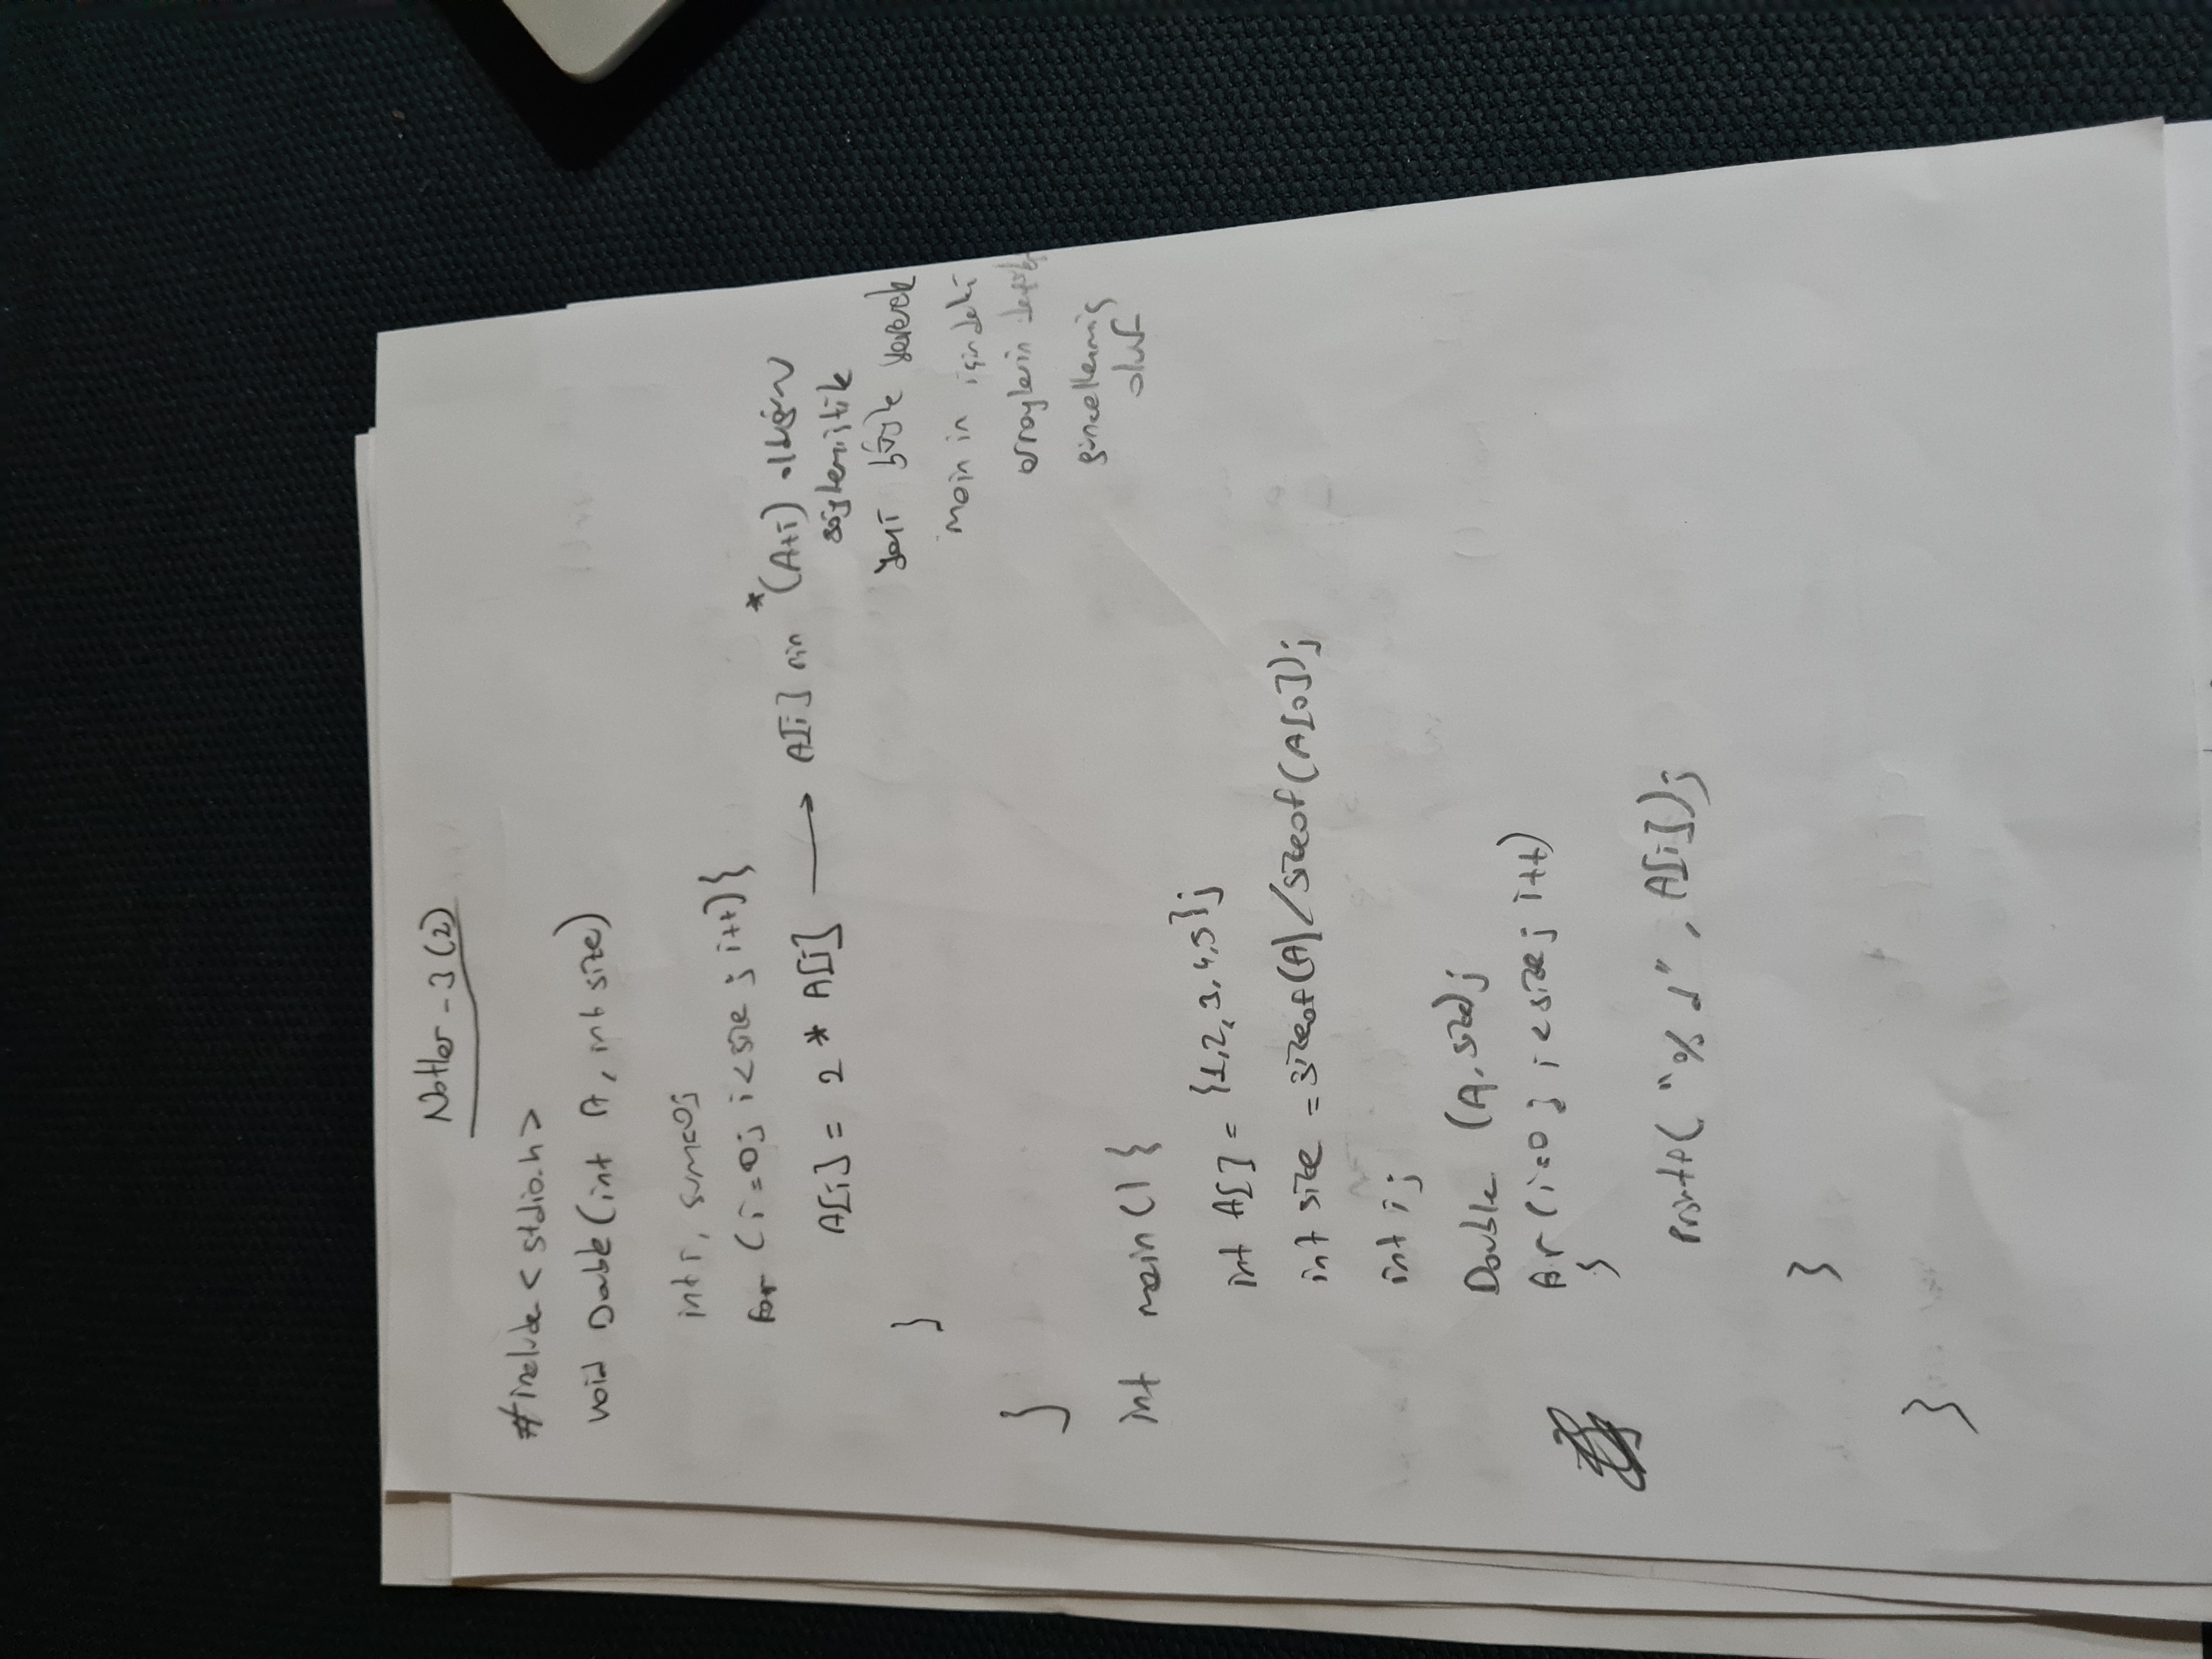 Notler - 3 (2)
#include < stdio.h >
void Double (int A, int size)
int i, sum=0;
for (i=0; i<size; i++) {
A[i] = 2 * A[i] → A[i] nin *(A+i) olduğunu
söylemiştik
yani böyle yaparak
}
main in içindeki
arraylerin
}
güncellenmiş
olur
int main() {
int A[] = {1,2,3,4,5};
int size = sizeof(A) / sizeof(A[0]);
int i;
Double (A, size);
for (i=0; i<size; i++)
{
printf( "%d", A[i]);
}
}